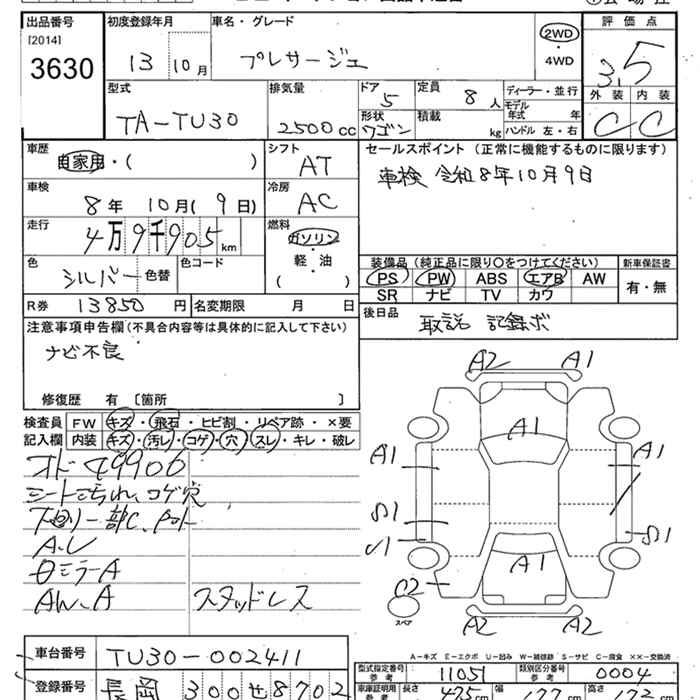 出品番号 初度登録年月 車名・グレード 2WD 評価点
[2014] 13 10月 プレサージュ ・4WD 3.5
3630 外装 内装
型式 排気量 ドア 定員 ディーラー・並行
TA-TU30 2500cc 5 8人 モデル年式 年
形状 積載 ハンドル 左・右 C C
ワゴン kg
車歴 シフト セールスポイント(正常に機能するものに限ります)
自家用・( ) AT 車検 令和8年10月9日
車検 冷房
8年 10月(9日) AC
走行 燃料
4万9千905km ガソリン
色 色コード ・軽・油
シルバー 色替 ( )
装備品(純正品に限り○をつけてください) 新車保証書
PS PW ABS エアB AW 有・無
SR ナビ TV カワ
R券 13850円 名変期限 月 日
後日品 取説 記録ボ
注意事項申告欄(不具合内容等は具体的に記入して下さい)
ナビ不良
修復歴 有〔箇所 〕
検査員 FW キズ・飛石・ヒビ割・リペア跡・×要
記入欄 内装 キズ・汚レ・コゲ・穴・スレ・キレ・破レ
オド 49906
シートよごれ、コゲ穴
下廻り一部C、
A.
ミラーA
AW.A スタッドレス
A2 A1
A1
A1 A1
A1
A2 A2
スペア
A-キズ E-エクボ U-凹み W-補修跡 S-サビ C-腐食 ××-交換済
車台番号 TU30-002411
登録番号 長岡 300せ8702
型式指定番号 参考 11051 類別区分番号 参考 0004
車庫証明用 参考 長さ 475cm 幅 177cm 高さ cm